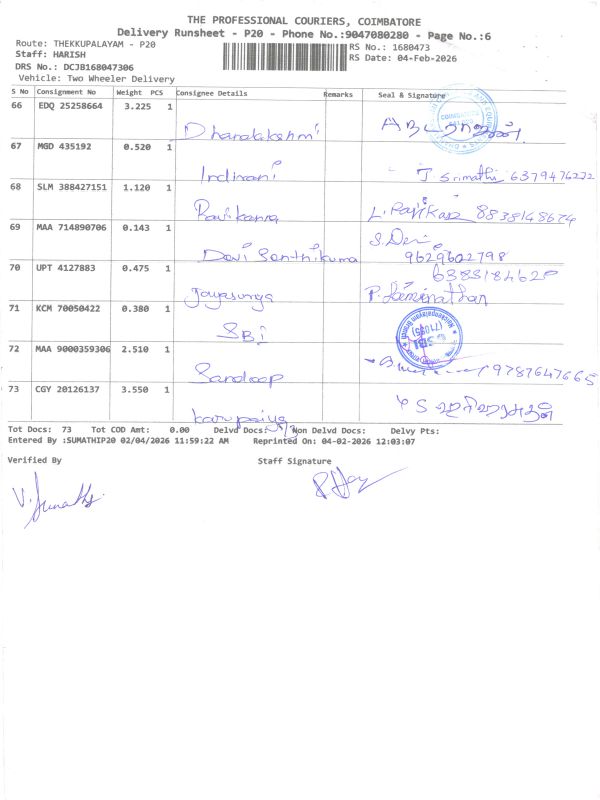 THE PROFESSIONAL COURIERS, COIMBATORE
Delivery Runsheet - P20 - Phone No.:9047080280 - Page No.:6
Route: THEKKUPALAYAM - P20
RS No.: 1680473
Staff: HARISH
RS Date: 04-Feb-2026
DRS No.: DCJB168047306
Vehicle: Two Wheeler Delivery
S No Consignment No Weight PCS Consignee Details Remarks Seal & Signature
66 EDQ 25258664 3.225 1
67 MGD 435192 0.520 1
Indirani J Srimathi 6379476272
68 SLM 388427151 1.120 1
L. 8838148674
69 MAA 714890706 0.143 1
S. Devi
Devi Senthikuma 9629602798
70 UPT 4127883 0.475 1
6383184620
Jayasurya P.
71 KCM 70050422 0.380 1
SBI SBI
72 MAA 9000359306 2.510 1
Sandeep 9787647665
73 CGY 20126137 3.550 1
Tot Docs: 73 Tot COD Amt: 0.00 Delvd Docs: Non Delvd Docs: Delvy Pts:
Entered By :SUMATHIP20 02/04/2026 11:59:22 AM Reprinted On: 04-02-2026 12:03:07
Verified By Staff Signature